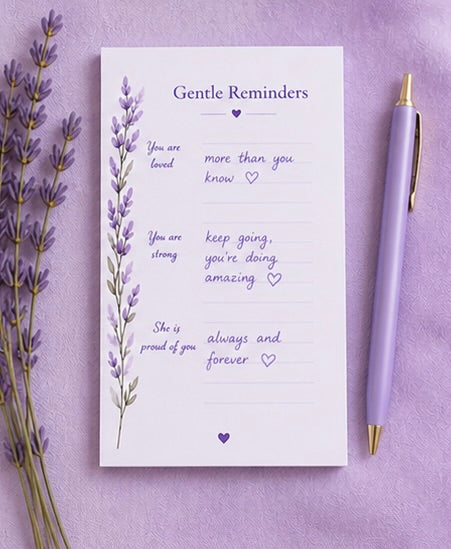 Gentle Reminders
You are
loved
more than you
know ♡
You are
strong
keep going,
you're doing
amazing ♡
She is
proud of you
always and
forever ♡